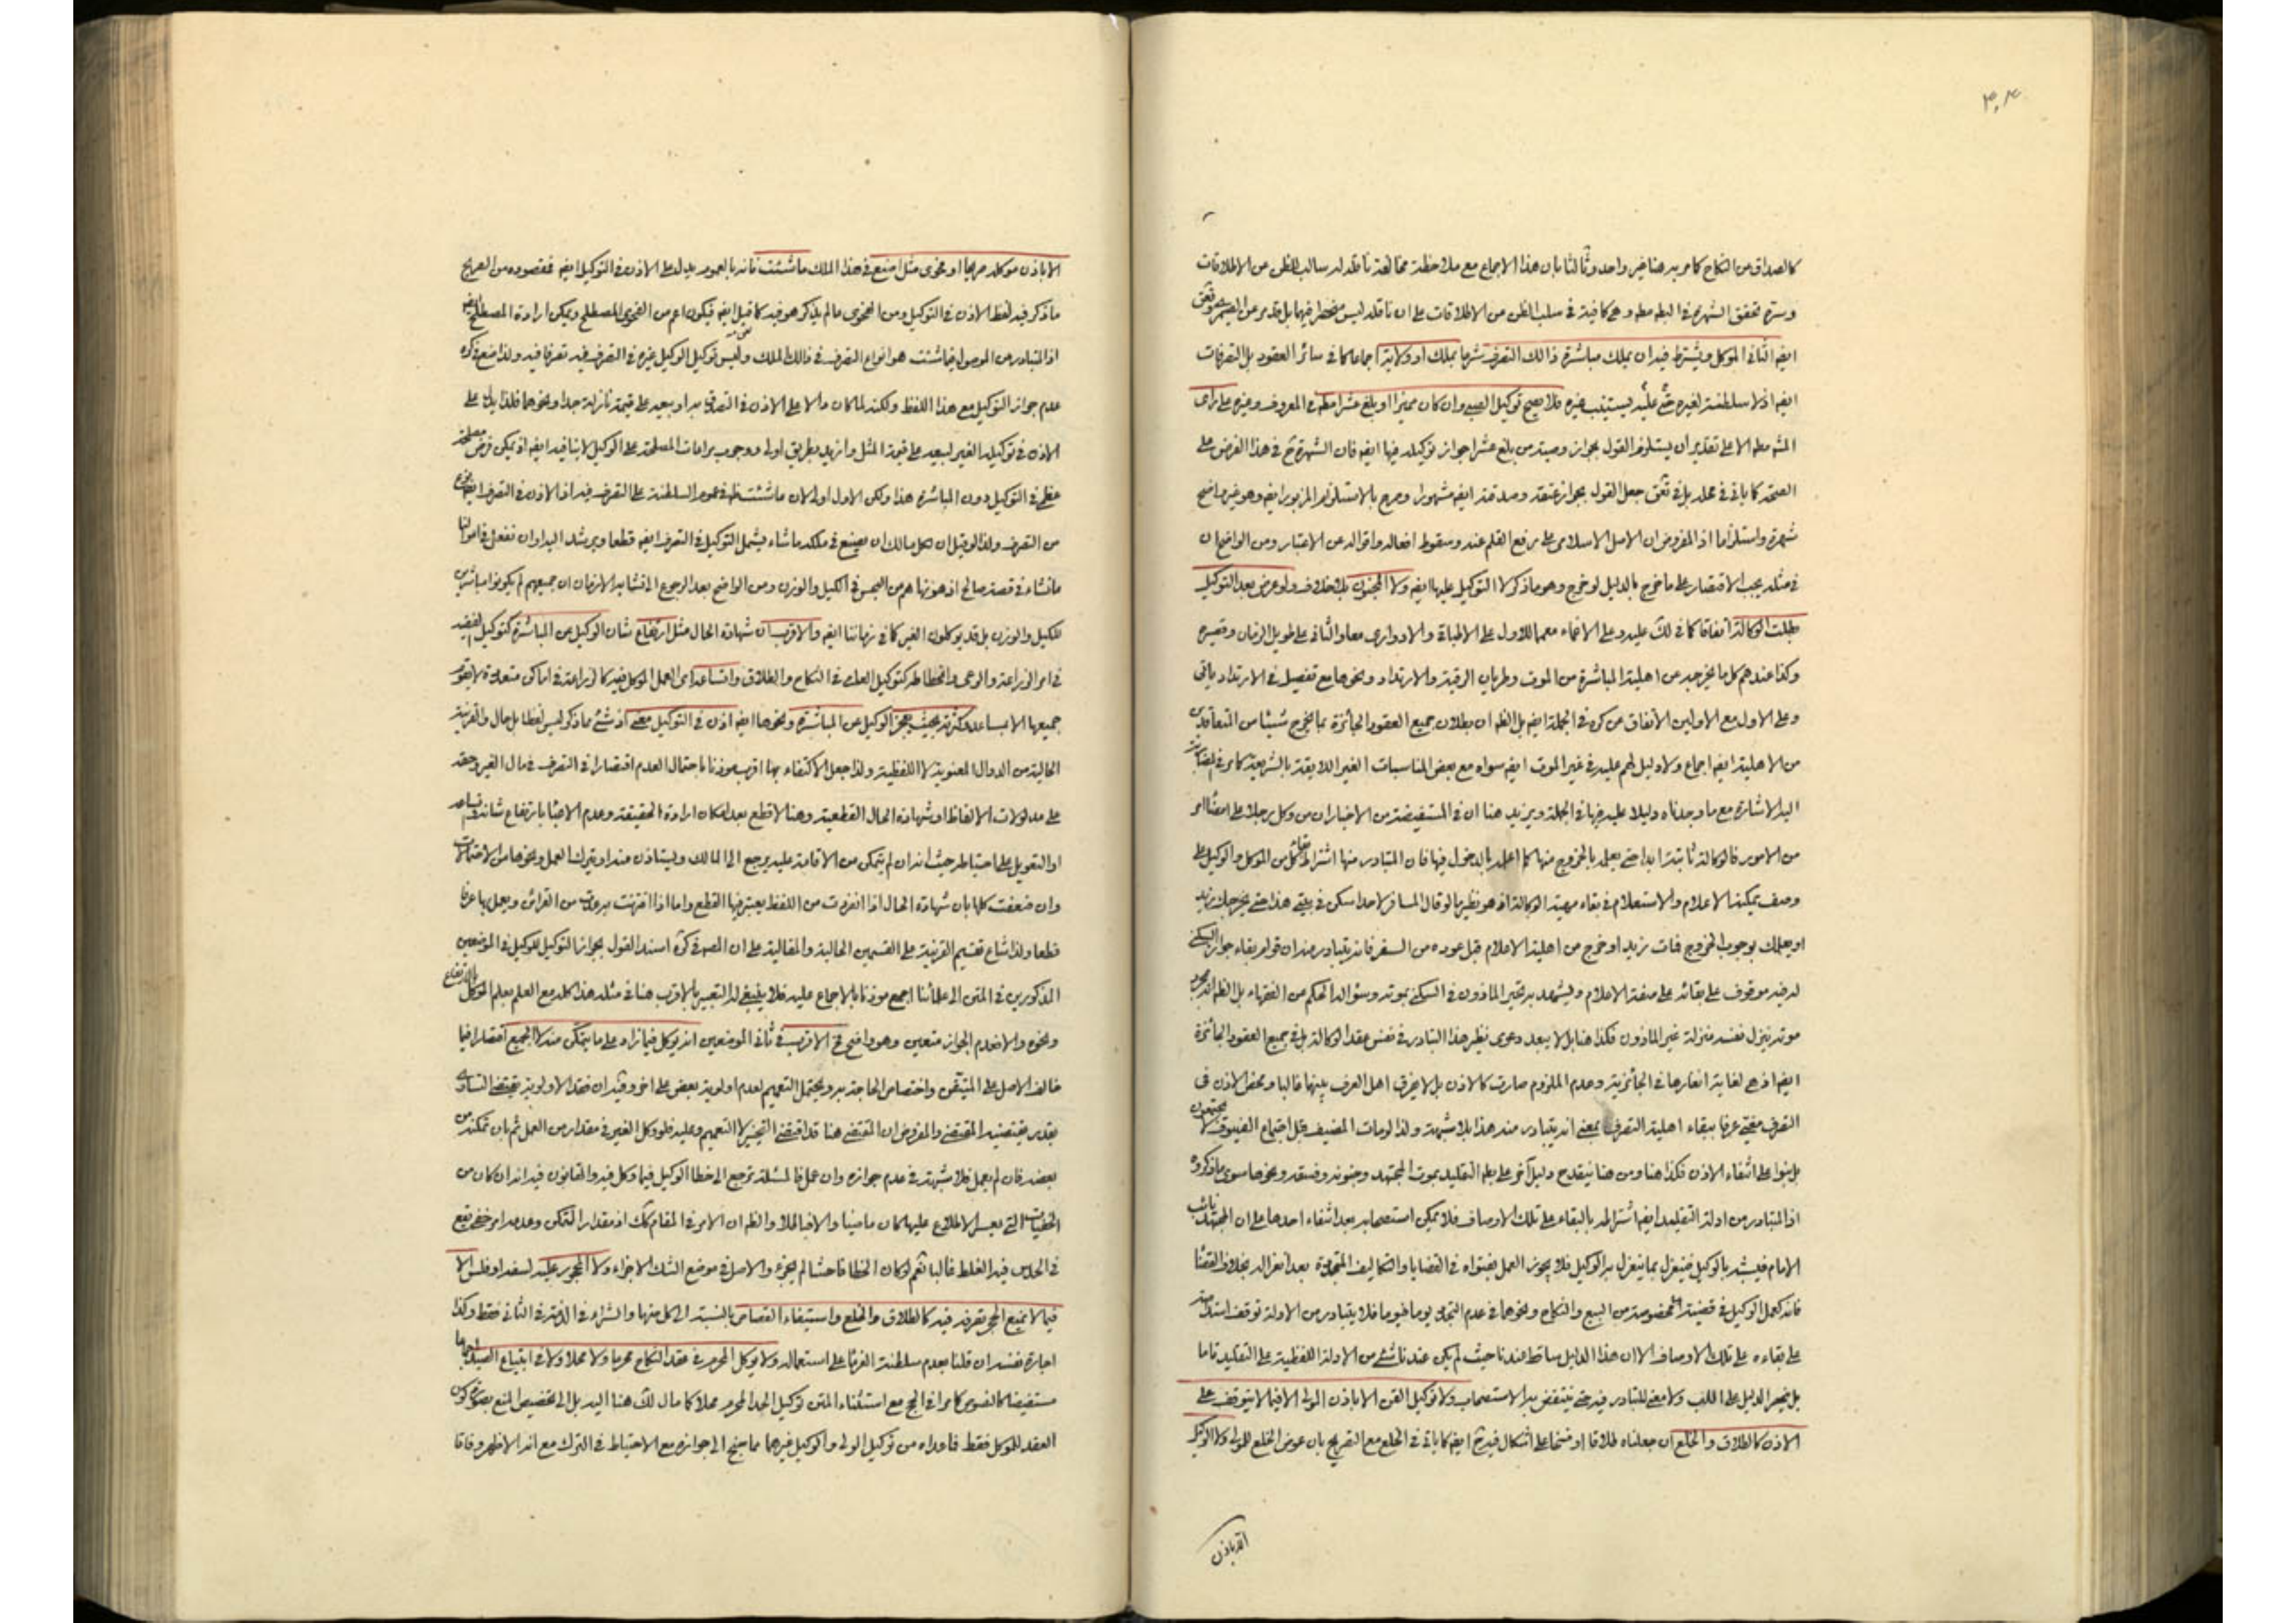 ٣٠٤
كالصداق من النكاح كما مر به هنا خبر واحد وثالثا بان هذا الاجماع مع ملاحظة مخالفة ناقله له سالب للظن من الاطلاقات
تحقق الشهرة في البطه مطه وهي كافية في سلب الظن من الاطلاقات على ان ناقله ليس منحصر فيهما بل قد مر عن
ايضه الثاني الموكل ويشترط فيه ان يملك مباشرة ذالك التصرف شرعا بملك او ولاية اجماعا كما في سائر العقود بل التصرفات
ايضه اذ لا سلطنة لغيره حتى عليه ليستنيب غيره فلا يصح توكيل الصبي وان كان مميزا او بلغ عشرا مطه في المعروف وغيره على راى
المشه مطه الا على تقدير ان يستلزم القول بجواز وصيته من بلغ عشرا جواز توكيله فيها ايضه فان الشهرة ح في هذا الفرض على
الصحة كما ياتي في محله بل في جعل القول بجواز عتقه وصدقته ايضه مشهورا وصرح بالاستلزام المزبور ايضه وهو غير واضح
شهرة واستلزاما اذ المفروض ان الاصل الاسلامي على رفع القلم عنه وسقوط افعاله واقواله عن الاعتبار ومن الواضح ان
في مثله يجب الاقتصار على ما خرج بالدليل لو خرج وهو ما ذكر لا التوكيل عليها ايضه ولا المجنون بلا خلاف ولو عرض بعد التوكيل
بطلت الوكالة اتفاقا كما في لك عليه وعلى الاغماء معمما للاول على الاطباق والادواري معا والثاني على طويل الزمان وقصيره
وكذا عندهم كل ما يخرجه عن اهلية المباشرة من الموت وطريان الرقية والارتداد ونحوها مع تفصيل في الارتداد ياتي
وعلى الاول مع الاولين الاتفاق عن كره في الجملة ايضه بل الظه ان بطلان جميع العقود الجائزة بما يخرج شيئا من المتعاقدين
من الاهلية ايضه اجماع ولا دليل لهم عليه في غير الموت ايضه سواه مع بعض المناسبات الغير اللائقة بالشريعة كما مر في
اليه الاشارة مع ما وجدناه دليلا عليه في الجملة ويزيد هنا ان في المستفيضة من الاخبار ان من وكل رجلا على امضاء امر
من الامور فالوكالة ثابتة ابدا حتى يعلمه بالخروج منها كما اعلمه بالدخول فيها فان المتبادر منها اشتراط كل من الموكل والوكيل على
وصف يمكنه الاعلام والاستعلام في بقاء الوكالة اذ هو نظير ما لو قال المسافر لاحد اسكن في بيتي هذا حتى يخرجك زيد
او يعلمك بوجوب الخروج فمات زيد او خرج من اهلية الاعلام قبل عوده من السفر فانه يتبادر منه ان قوام بقاء جواز السكنى
له فيه موقوف على بقائه على صفة الاعلام ويشهد به تحير الماذون في السكنى بموته وسؤاله الحكم من الفقهاء بل الظه انه
موته ينزل نفسه منزلة غير الماذون فكذا هنا بل لا يبعد دعوى نظير هذا التبادر في نفس عقد الوكالة بل في جميع العقود الجائزة
ايضه اذ هي لغاية في الجائزية وعدم الملزوم صارت كالاذن بل لا يفرق اهل العرف بينها غالبا ومحض الاذن في
التصرف مغيى عرفا ببقاء اهلية التصرف بمعنى انه يتبادر منه هذا بلا شبهة ولذا لو مات المضيف قبل اجتماع الضيوف لا
بل بنوا على انتفاء الاذن فكذا هنا ومن هنا ينقدح دليل آخر على بطه التقليد بموت المجتهد وجنونه وفسقه ونحوها سوى ما ذكروه
اذ المتبادر من ادلة التقليد ايضه اشتراطه بالبقاء على تلك الاوصاف فلا يمكن استصحابه بعد انتفاء احدها على ان المجتهد نائب
الامام فيشبه بالوكيل فينعزل بما ينعزل به الوكيل فلا يجوز العمل بفتواه في القضايا والتكاليف المتجددة بعد انعزاله بخلاف القضاء
فانه كعمل الوكيل في قضية من البيع والنكاح ونحوها في عدم التجدد يوما فيوما فلا يتبادر من الادلة توقف
على بقاءه على تلك الاوصاف الا ان هذا الدليل ساقط عندنا حيث لم يكن عندنا شئ من الادلة اللفظية على التقليد تاما
بل ينحصر الدليل على اللب ولا معنى للتبادر فيه حتى ينتقض به الاستصحاب ولا توكيل القن الا باذن المولى الا فيما لا يتوقف على
الاذن كالطلاق والخلع ان جعلناه طلاقا او فسخا على اشكال فيه ح ايضه كما ياتي في الخلع مع التصريح بان عوض الخلع للمولى ولا الوكيل
الا باذن
الا باذن موكله صريحا او فحوى مثل اصنع في هذا الملك ما شئت فانه بالعموم يدل على الاذن في التوكيل ايضه فمقصوده من الصريح
ما ذكر فيه لفظ الاذن في التوكيل ومن الفحوى ما لم يذكر هو فيه كما قيل ايضه فيكون اعم من الفحوى المصطلح ويمكن ارادة المصطلح
اذ المتبادر من الموصول فيما شئت هو انواع التصرف في ذالك الملك وليس توكيل الوكيل غيره في التصرف فيه تصرفا فيه ولذا منع في كره
عدم جواز التوكيل مع هذا اللفظ ولكنه لما كان دالا على الاذن في التصدق به او بيعه على قيمة نازلة جدا ونحوها فلذا يدل على
الاذن في توكيله الغير لبيعه على قيمة المثل وازيد بطريق اولى ووجوب مراعات المصلحة على الوكيل لا ينافيه ايضه اذ يمكن فرض مصلحة
عظمى في التوكيل دون المباشرة هذا ولكن الاول اولى لان ما شئت ظه في عموم السلطنة على التصرف فيه اذ الاذن في التصرف ايضه
من التصرف ولذا لو قيل ان لكل مالك ان يصنع في ملكه ما شاء يشمل التوكيل في التصرف ايضه قطعا ويرشد اليه او ان نفعل في اموالنا
ما نشاء في قصة صالح اذ هو نهاهم من البخس في الكيل والوزن ومن الواضح بعد الرجوع الى الازمان ان جميعهم لم يكونوا مباشرين
للكيل والوزن بل قد يوكلون الغير كما في زماننا ايضه والاقرب ان شهادة الحال مثل ارتفاع شان الوكيل عن المباشرة كتوكيل
في امر الزراعة والرعى كتوكيل العلماء في النكاح والطلاق واتساعه اى العمل الموكل فيه كالزراعة في اماكن متعددة لا يقوم
جميعها الا بمساعد وكثرته بحيث يعجز الوكيل عن المباشرة ونحوها ايضه اذن في التوكيل معنى اذ شئ مما ذكر ليس لفظا بل حال والقرينة
الحالية من الدوال المعنوية لا اللفظية ولذا جعل الاكتفاء بها اقرب موذنا باحتمال العدم اقتصارا في التصرف في مال الغير وحقه
على مدلولات الالفاظ او شهادة الحال القطعية وهنا لا قطع بعد امكان ارادة الحقيقة وعدم الاعتناء بارتفاع شانه
او التعويل على احتياطه حيث انه ان لم يتمكن من الاقامة عليه يرجع الى المالك ويستاذن منه او يترك العمل ونحوها من الاحتمالات
وان ضعفت كلها بان شهادة الحال اذا انفردت من اللفظ يعتبر فيها القطع واما اذا اقترنت به من القرائن ويعمل بها عرفا
قطعا ولذا شاع تقسيم القرينة على القسمين الحالية والمقالية على ان المصه في كره اسند القول بجواز التوكيل للوكيل في الموضعين
المذكورين في المتن الى علمائنا اجمع موذنا بالاجماع عليه فلا ينبغي له التعبير بالاقرب هنا في مثله هذا كله مع العلم بعلم الموكل بالارتفاع
ونحوه والا فعدم الجواز متعين وهو واضح ثم الاقرب في ثاني الموضعين انه يوكل فيما زاد على ما يتمكن منه لا الجميع اقتصارا فيما
خالف الاصل على المتيقن واختصاص الحاجة به ويحتمل التعميم لعدم اولوية بعض على آخر وفيه ان فقد الاولوية يقتضي التساوي
بقدر يقتضيه المقتضي والمفروض ان المقتضي هنا قد اقتضى التخيير لا التعميم وعليه فلو وكل الغير في مقدار من العمل ثم بان تمكنه من
بعضه فان لم يعمل فلا شبهة في عدم جوازه وان عمل فالمسئلة ترجع الى خطا الوكيل فيما وكل فيه والقانون فيه انه ان كان من
الخفيات التي يعسر الاطلاع عليها كان ماضيا والا فباطلا والظه ان الامر في المقام كك اذ مقدار التمكن وعدمه امر خفي يقع
في الحدس فيه الغلط غالبا نعم لو كان الخطا فاحشا لم يجزه والاصل في موضع الشك الاجزاء ولا المحجور عليه لسفه او فلس الا
فيما لا يمنع الحجر تصرفه فيه كالطلاق والخلع واستيفاء القصاص بالنسبة الى كل منهما والشراء في الذمة في الثاني فقط وكذا
اجارة نفسه ان قلنا بعدم سلطنة الغرماء على استعماله ولا يوكل المحرم في عقد النكاح محرما ولا محلا ولا في ابتياع الصيد
مستفيضا كالنصوص كما مر في الحج مع استثناء المتن توكيل الجد المحرم محلا كما مال لك هنا اليه بل الى تخصيص المنع بصورة كون
العقد للموكل فقط فما عداه من توكيل الولي والوكيل غيرهما مما جنح الى جوازه مع الاحتياط في الترك مع انه الاظهر وفاقا